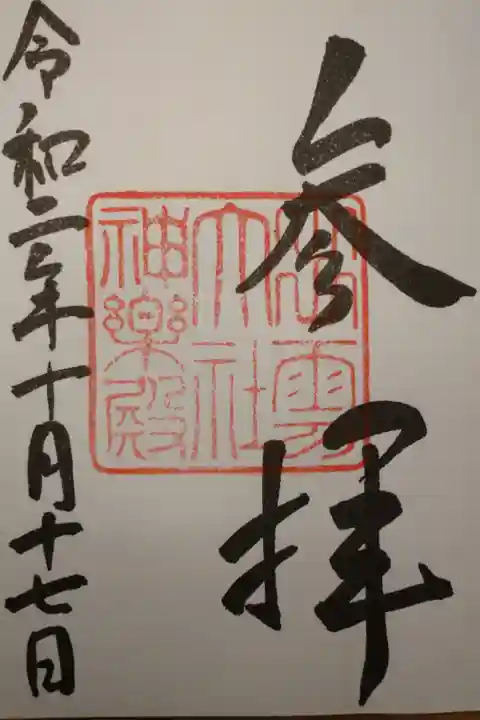 参拝
出雲
大社
神楽殿
令和二年十月十七日